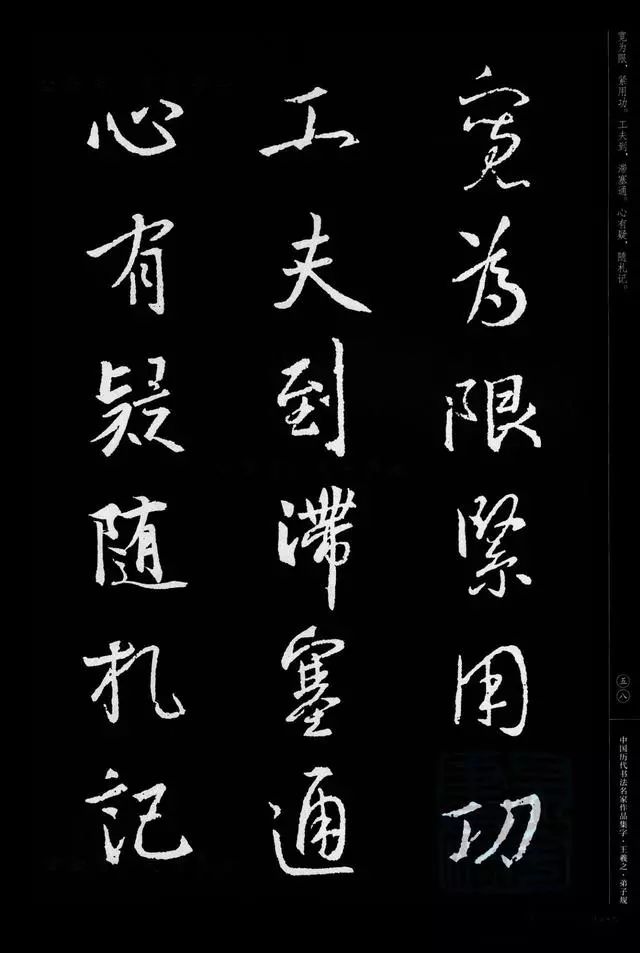 宽为限，紧用功。工夫到，滞塞通。心有疑，随札记。
寬為限緊用功
工夫到滯塞通
心有疑随札記
五八
中国历代书法名家作品集字·王羲之·弟子规